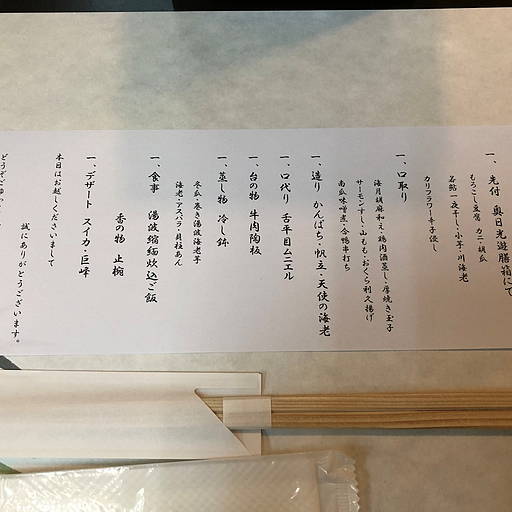 一、先付 奥日光遊膳箱にて
もろこし豆腐 カニ 胡瓜
若鮎一夜干し・小芋・川海老
カリフラワー辛子浸し
一、口取り
海月胡麻和え・鶏肉酒蒸し・厚焼き玉子
サーモンずし・山もも・おくら利久揚げ
南瓜味噌煮・合鴨串打ち
一、造り かんぱち・帆立・天使の海老
一、口代り 舌平目ムニエル
一、台の物 牛肉陶板
一、蒸し物 冷し鉢
冬瓜・巻き湯波・海老芋
海老・アスパラ・貝柱あん
一、食事 湯波縮緬炊込ご飯
香の物 止椀
一、デザート スイカ・巨峰
本日はお越しくださいまして
誠にありがとうございます。